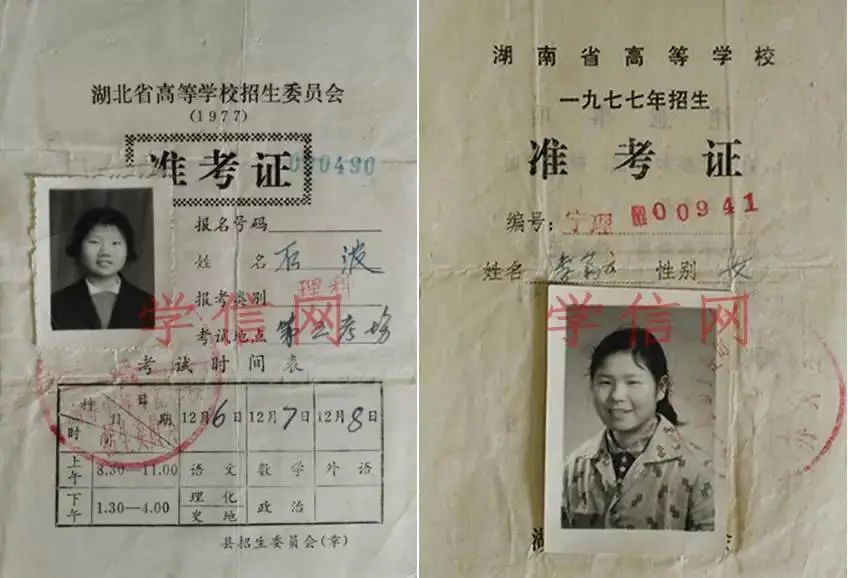 湖北省高等学校招生委员会
(1977)
准考证
000490
报名号码
姓 名 石 波
报考类别 理科
考试地点 第三考场
考试时间表
科 目 日 期
时 间
12月6日 12月7日 12月8日
上午 8.30—11.00 语文 数学 外语
下午 1.30—4.00 理化 史地 政治
县招生委员会(章)
学信网
湖南省高等学校
一九七七年招生
准考证
编号: 宁理 00941
姓名 性别 女
学信网
湖